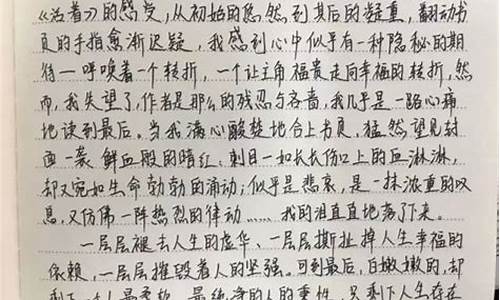 《活着》的感受,从初始的悠然到其后的凝重,翻动书
页的手指愈渐迟疑,我感到心中似乎有一种隐秘的期
待一呼唤着一个转折,一个让主角福贵走向幸福的转折,然
而,我失望了,作者是那么的残忍与吝啬,我几乎是一路心痛
地读到最后。当我满心酸楚地合上书页,猛然,望见封
面一袭鲜血般的暗红,刺目一如长长伤口上的血淋淋,
却又宛如生命勃勃的涌动;似乎是悲哀,是一抹浓重的叹
息,又仿佛一阵热烈的律动……我的泪直直地落了下来。
一层层褪去人生的虚华、一层层撕扯掉人生幸福的
依赖,一层层摧毁着人的坚强。可到最后,白嫩嫩的,却
剩下 人最柔软、最纯净的人的重性,只剩下人生存在